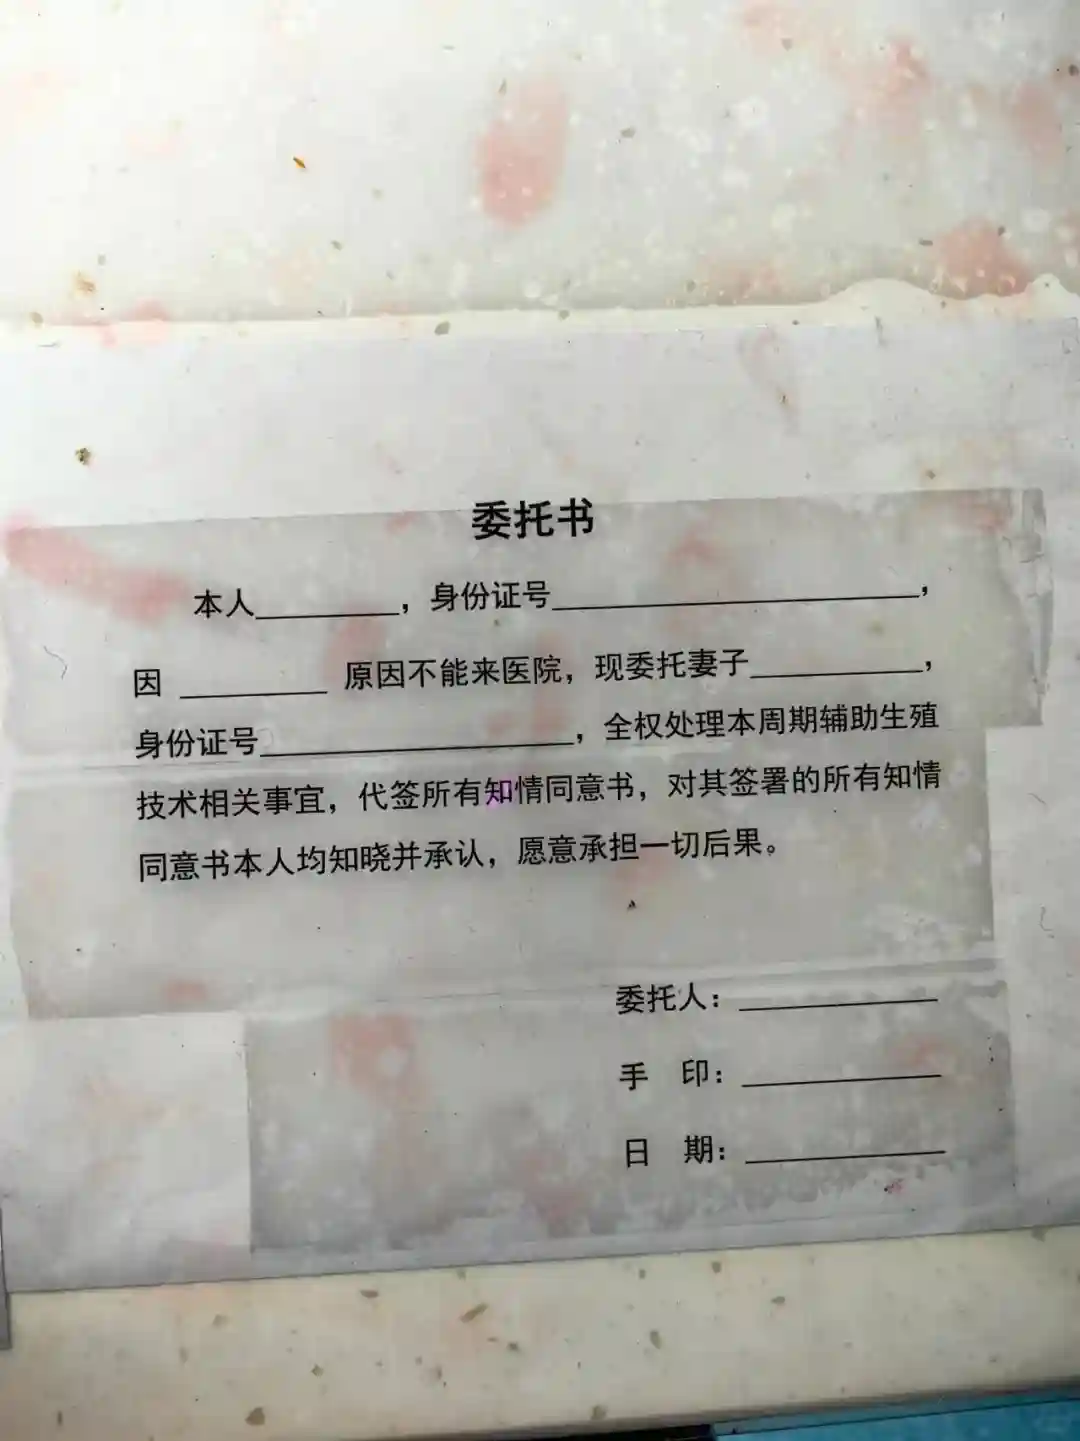 委托书
本人________，身份证号____________________，
因 ________ 原因不能来医院，现委托妻子__________，
身份证号__________________，全权处理本周期辅助生殖
技术相关事宜，代签所有知情同意书，对其签署的所有知情
同意书本人均知晓并承认，愿意承担一切后果。
委托人：____________
手 印：____________
日 期：____________